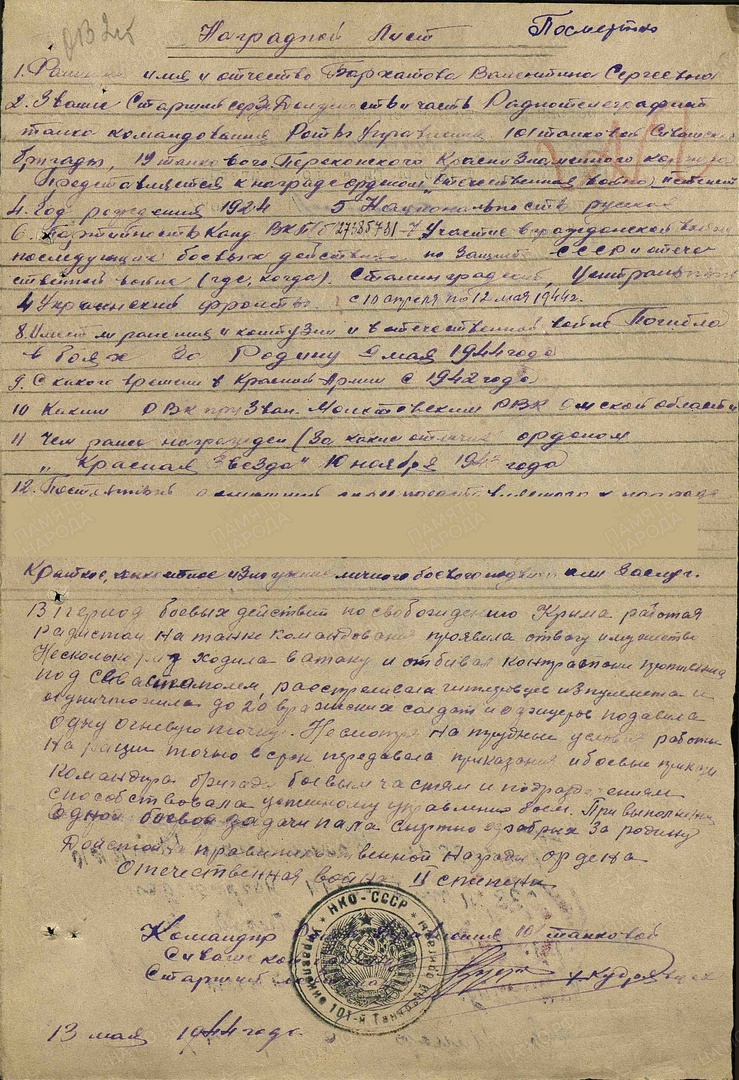 Наградной Лист Посмертно
1. Фамилия имя и отчество Бархатова Валентина Сергеевна
2. Звание Старший серж. Должность и часть Радиотелеграфист
танка командования Роты Управления 101 танковой Сивашской
бригады, 19 танкового Перекопского Краснознаменного корпуса
Представляется к награде орденом "Отечественная война"
4. Год рождения 1924 5 Национальность русская
6. Партийность Канд. ВКП/б 7 Участие в гражданской войне
последующих боевых действиях по защите СССР и отече
ственной войне (где, когда). Сталинградский, Центральный
4 Украинский фронты с 10 апреля по 12 мая 1944г.
8. Имеет ли ранения и контузии в отечественной войне Погибла
в боях за Родину 9 мая 1944 года
9. С какого времени в Красной Армии с 1942 года
10 Каким РВК призван. Молотовским РВК Омской области
11 Чем ранее награжден (За какие отличия орденом
"Красная Звезда" 10 ноября 1942 года
12. Постоянный
ПАМЯТЬ НАРОДА
Краткое, конкретное изложение личного боевого подвига или заслуг.
В период боевых действий по освобождению Крыма работая
радисткой на танке командования проявила отвагу и мужество
Несколько раз ходила в атаку и отбивая контратаки противника
под Севастополем, расстреливала гитлеровцев из пулемета и
уничтожила до 20 вражеских солдат и офицеров подавила
одну огневую точку. Несмотря на трудные условия работы
на рации точно в срок передавала приказания и боевые приказы
командира бригады боевым частям и подразделениям
способствовала успешному управлению боем. При выполнении
одной боевой задачи пала смертью храбрых за родину
Достойна правительственной награды ордена
Отечественная война II степени
Командир Роты Управления 101 танковой
Сивашской
Старший
НКО-СССР
Управление 101-й Танковой
13 мая 1944 года.